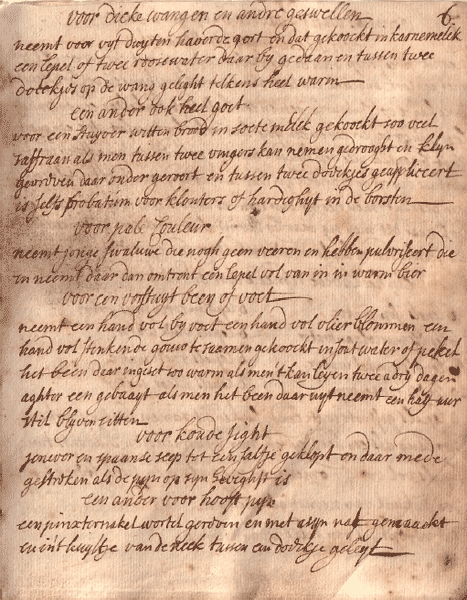 6
voor dicke wangen en andre geswellen
neemt voor vyf duyten haverde gort en dat gekoockt in karnemelck
een lepel of twee roosewater daar by gedaan en tussen twee
doeckjes op de wang geleght telkens heel warm
een ander ook heel goet
voor een stuyver witten brood in soete melck gekoockt soo veel
saffraan als men tussen twee vingers kan nemen gedrooght en klyn
gevreven daar onder geroert en tussen twee doeckjes geappliceert
is selfs probatum voor klonters of hardighyt in de borsten
voor pale couleur
neemt jonge swaluwe die nogh geen veeren en hebben pulvriseert die
in neemt daar dan omtrent een lepel vol van in in warm bier
voor een voet
neemt een hand vol byvoet een hand vol vlier blommen een
hand vol stenkende gouwe te saamen gekoockt in sout water of pekel
het been daar ingeset soo warm als ment kan leyen twee a drij dagen
aghter een gebaayt als men het been daar uyt neemt een half uur
stil blyven sitten
voor koude jight
jenever en spaanse seep tot een salfje geklopt en daar mede
gestroken als de pyn op syn is
een ander voor hooft pyn
een pinxternakel wortel en met asyn nat gemaackt
en in't kuyltje van de neck tussen een doeckje geleyt